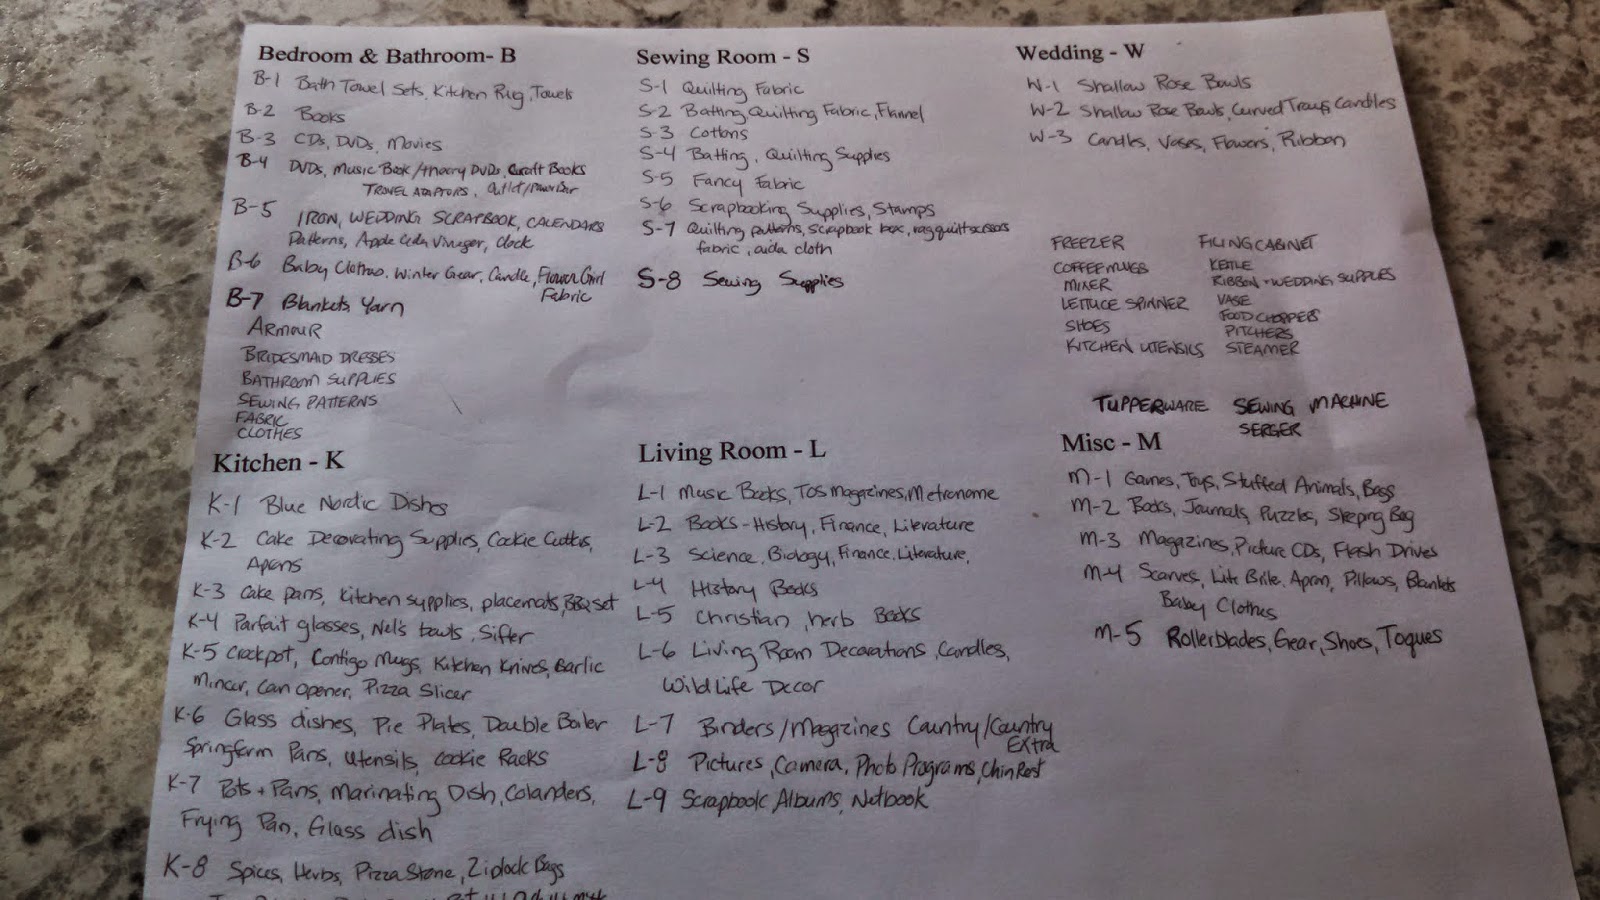 Bedroom & Bathroom- B
B-1 Bath Towel Sets, Kitchen Rug, Towels
B-2 Books
B-3 CDs, DVDs, Movies
B-4 DVDs, Music Book/theory DVDs, Craft Books
TRAVEL ADAPTORS, Outlet/Power Bar
B-5 IRON, WEDDING SCRAPBOOK, CALENDARS
Patterns, Apple Cider Vinegar, clock
B-6 Baby Clothes, Winter Gear, Candle, Flower Girl
Fabric
B-7 Blankets, Yarn
ARMOUR
BRIDESMAID DRESSES
BATHROOM SUPPLIES
SEWING PATTERNS
FABRIC
CLOTHES
Sewing Room - S
S-1 Quilting Fabric
S-2 Batting Quilting Fabric, Flannel
S-3 Cottons
S-4 Batting, Quilting Supplies
S-5 Fancy Fabric
S-6 Scrapbooking Supplies, Stamps
S-7 Quilting patterns, scrapbook box, rag quilt scissors
fabric, aida cloth
S-8 Sewing Supplies
Wedding - W
W-1 Shallow Rose Bowls
W-2 Shallow Rose Bowls, Curved Trays, Candles
W-3 Candles, Vases, Flowers, Ribbon
FREEZER
COFFEE MUGS
MIXER
LETTUCE SPINNER
SHOES
KITCHEN UTENSILS
FILING CABINET
KETTLE
RIBBON + WEDDING SUPPLIES
VASE
FOOD CHOPPERS
PITCHERS
STEAMER
TUPPERWARE SEWING MACHINE
SERGER
Kitchen - K
K-1 Blue Nordic Dishes
K-2 Cake Decorating Supplies, Cookie Cutters,
Aprons
K-3 Cake pans, kitchen supplies, placemats, BBQ set
K-4 Parfait glasses, Nel's bowls, Sifter
K-5 Crockpot, Contigo Mugs, Kitchen Knives, Garlic
Mincer, Can opener, Pizza Slicer
K-6 Glass dishes, Pie Plates, Double Boiler
Springform Pans, Utensils, Cookie Racks
K-7 Pots + Pans, Marinating Dish, Colanders,
Frying Pan, Glass dish
K-8 Spices, Herbs, Pizza Stone, Ziplock Bags
Living Room - L
L-1 Music Books, TOS magazines, Metronome
L-2 Books - History, Finance, Literature
L-3 Science, Biology, Finance, Literature,
L-4 History Books
L-5 Christian, herb Books
L-6 Living Room Decorations, Candles,
Wild Life Decor
L-7 Binders/Magazines Country/Country
Extra
L-8 Pictures, Camera, Photo Programs, Chin Rest
L-9 Scrapbook, Albums, Netbook
Misc - M
M-1 Games, Toys, Stuffed Animals, Bags
M-2 Books, Journals, Puzzles, Sleeping Bag
M-3 Magazines, Picture CDs, Flash Drives
M-4 Scarves, Lite Brite, Apron, Pillows, Blankets
Baby Clothes
M-5 Rollerblades, Gear, Shoes, Toques